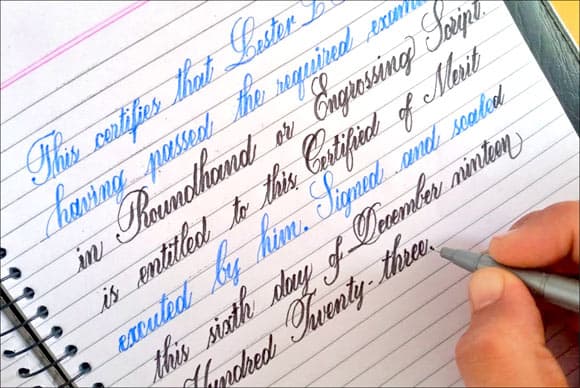 This certifies that Lester
having passed the required
in Roundhand or Engrossing Script.
is entitled to this Certified of Merit
excuted by him. Signed and scaled
this sixth day of December ninteen
Hundred Twenty-three.